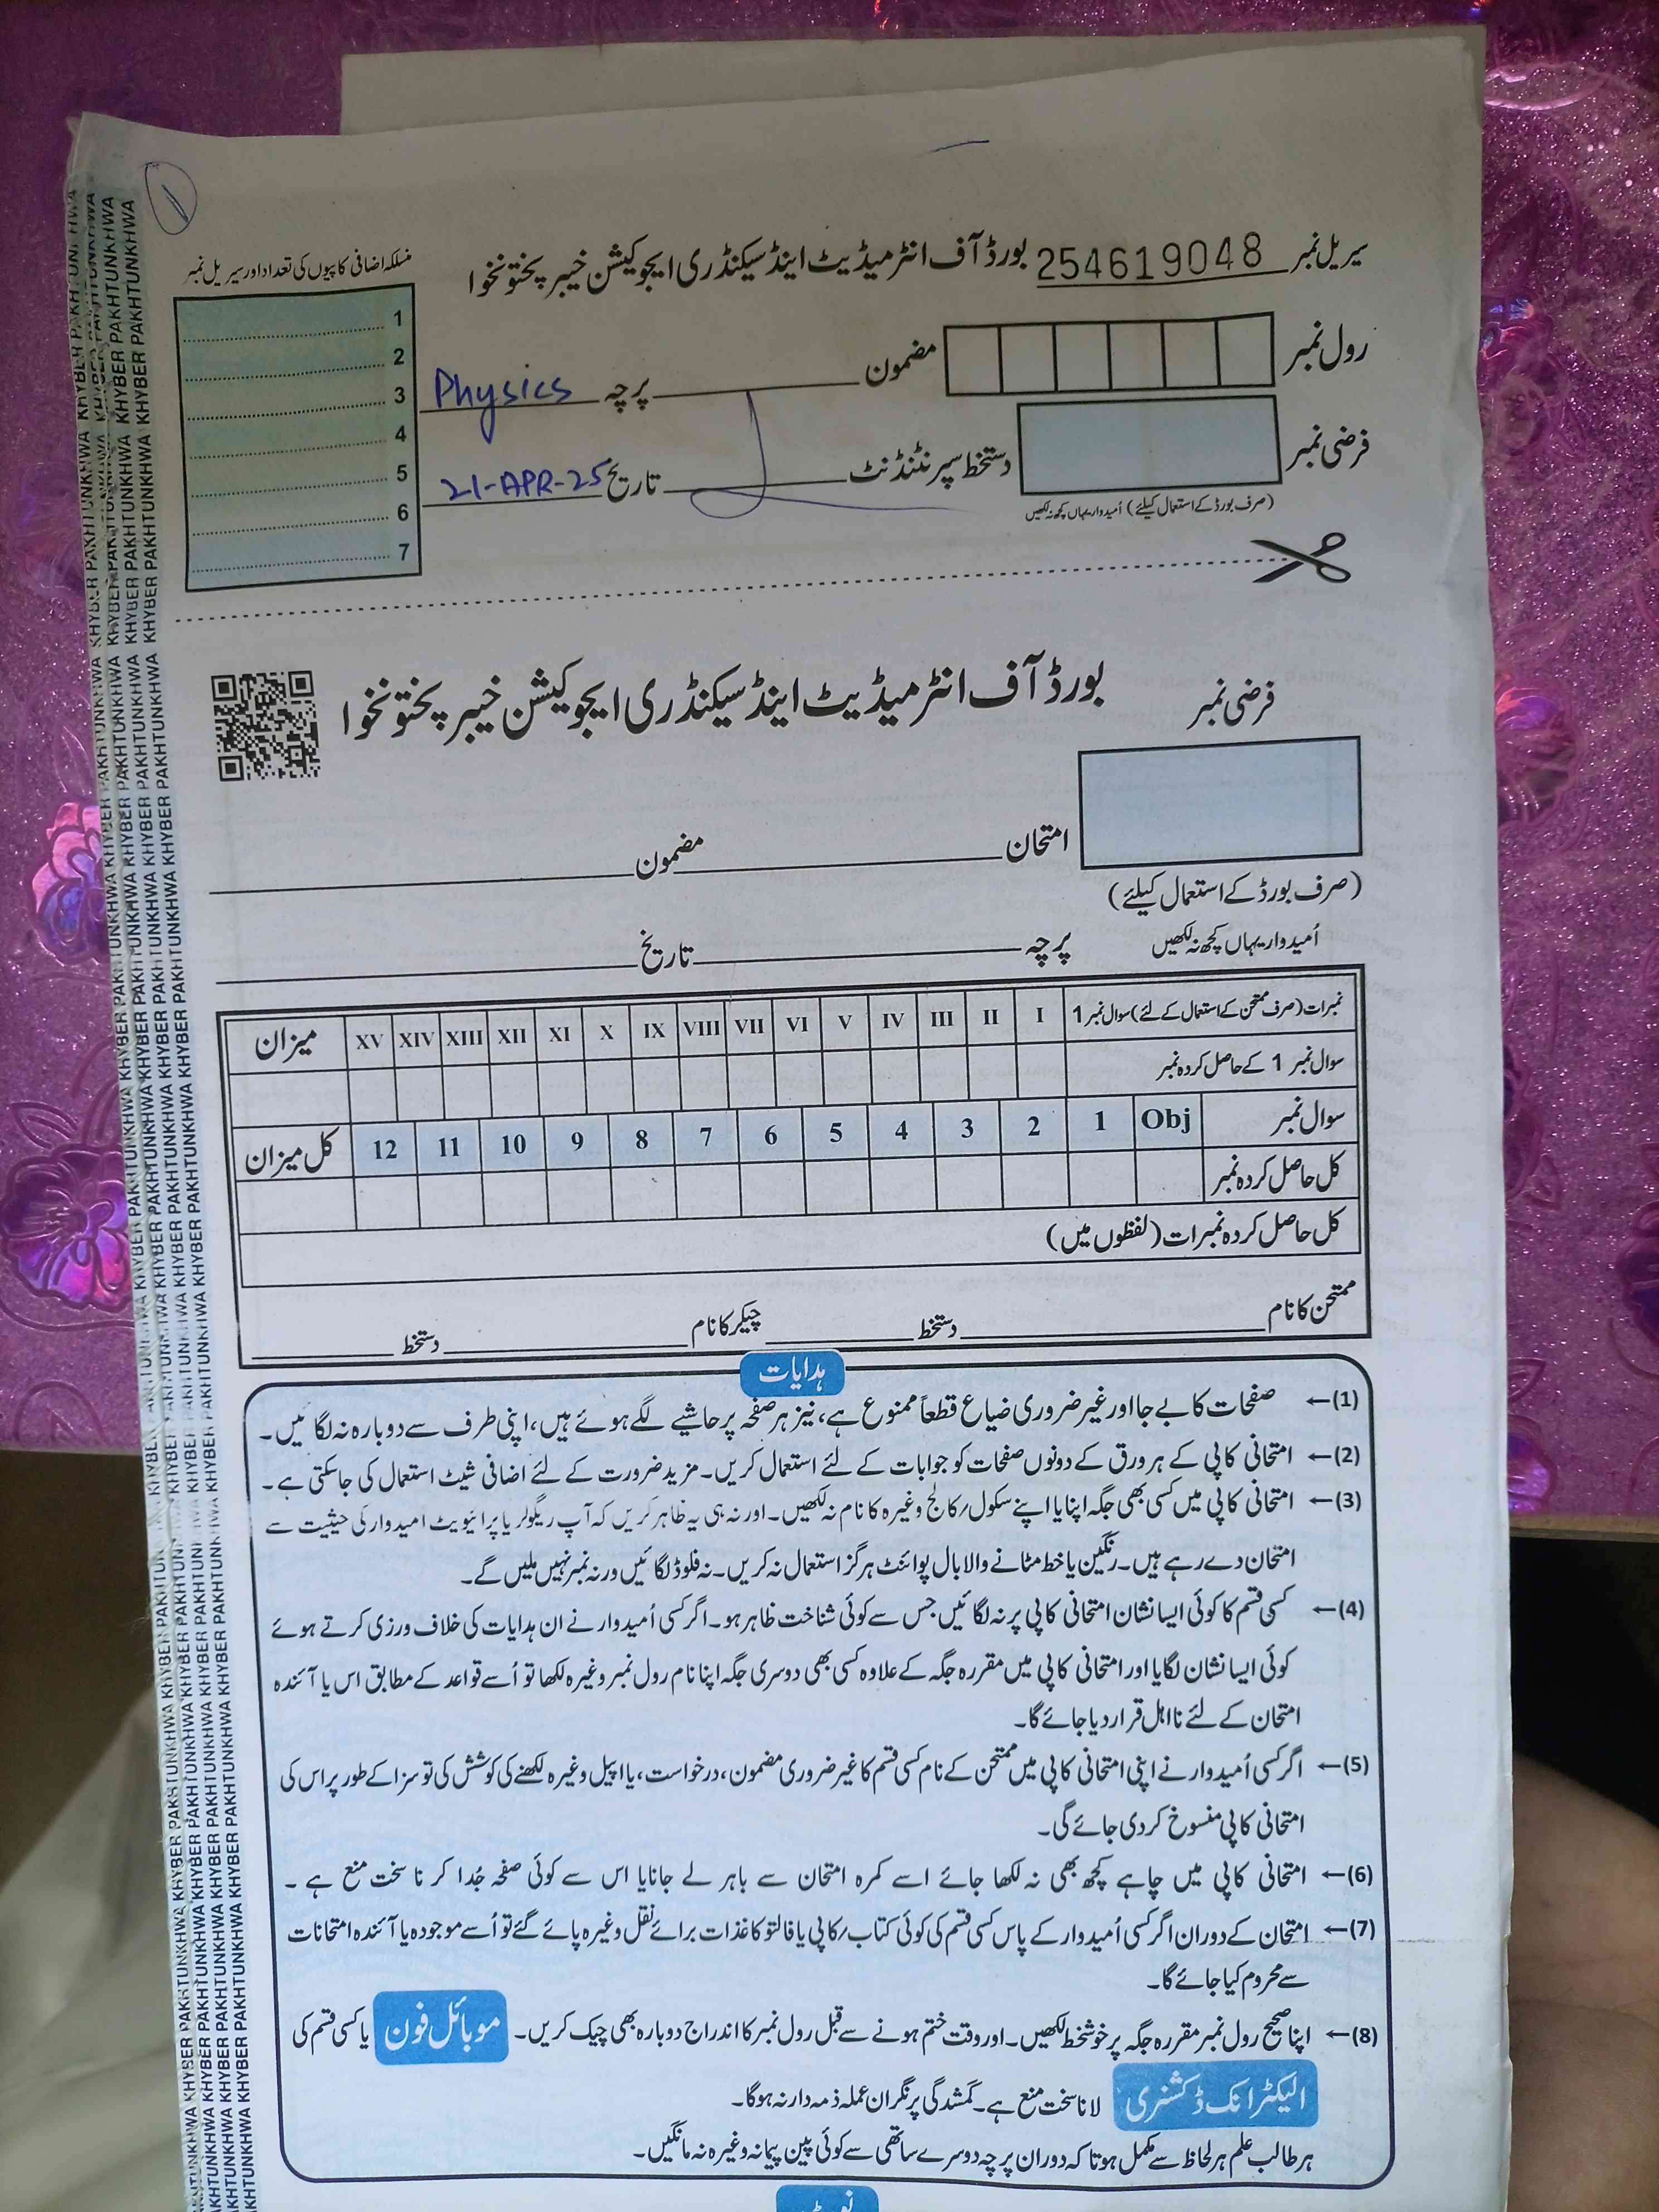 سیریل نمبر 254619048 بورڈ آف انٹرمیڈیٹ اینڈ سیکنڈری ایجوکیشن خیبر پختونخوا
منسلکہ اضافی کاپیوں کی تعداد اور سیریل نمبر
1
2
3
4
5
6
7
رول نمبر
مضمون
پرچہ Physics
فرضی نمبر
دستخط سپرنٹنڈنٹ
تاریخ 21-APR-25
(صرف بورڈ کے استعمال کیلئے) اُمیدوار یہاں کچھ نہ لکھیں
فرضی نمبر
بورڈ آف انٹرمیڈیٹ اینڈ سیکنڈری ایجوکیشن خیبر پختونخوا
امتحان
مضمون
(صرف بورڈ کے استعمال کیلئے)
اُمیدوار یہاں کچھ نہ لکھیں
پرچہ
تاریخ
نمبرات (صرف ممتحن کے استعمال کے لئے) سوال نمبر 1 I II III IV V VI VII VIII IX X XI XII XIII XIV XV میزان
سوال نمبر 1 کے حاصل کردہ نمبر
سوال نمبر Obj 1 2 3 4 5 6 7 8 9 10 11 12 کل میزان
کل حاصل کردہ نمبر
کل حاصل کردہ نمبرات (لفظوں میں)
ممتحن کا نام دستخط چیکر کا نام دستخط
ہدایات
(1)← صفحات کا بے جا اور غیر ضروری ضیاع قطعاً ممنوع ہے، نیز ہر صفحہ پر حاشیے لگے ہوئے ہیں، اپنی طرف سے دوبارہ نہ لگائیں۔
(2)← امتحانی کاپی کے ہر ورق کے دونوں صفحات کو جوابات کے لئے استعمال کریں۔ مزید ضرورت کے لئے اضافی شیٹ استعمال کی جاسکتی ہے۔
(3)← امتحانی کاپی میں کسی بھی جگہ اپنا یا اپنے سکول/کالج وغیرہ کا نام نہ لکھیں۔ اور نہ ہی یہ ظاہر کریں کہ آپ ریگولر یا پرائیویٹ امیدوار کی حیثیت سے
امتحان دے رہے ہیں۔ رنگین یا خط مٹانے والا بال پوائنٹ ہرگز استعمال نہ کریں۔ نہ فلوڈ لگائیں ورنہ نمبر نہیں ملیں گے۔
(4)← کسی قسم کا کوئی ایسا نشان امتحانی کاپی پر نہ لگائیں جس سے کوئی شناخت ظاہر ہو۔ اگر کسی اُمیدوار نے ان ہدایات کی خلاف ورزی کرتے ہوئے
کوئی ایسا نشان لگایا اور امتحانی کاپی میں مقررہ جگہ کے علاوہ کسی بھی دوسری جگہ اپنا نام رول نمبر وغیرہ لکھا تو اُسے قواعد کے مطابق اس یا آئندہ
امتحان کے لئے نااہل قرار دیا جائے گا۔
(5)← اگر کسی اُمیدوار نے اپنی امتحانی کاپی میں ممتحن کے نام کسی قسم کا غیر ضروری مضمون، درخواست، یا اپیل وغیرہ لکھنے کی کوشش کی تو سزا کے طور پر اس کی
امتحانی کاپی منسوخ کردی جائے گی۔
(6)← امتحانی کاپی میں چاہے کچھ بھی نہ لکھا جائے اسے کمرہ امتحان سے باہر لے جانا یا اس سے کوئی صفحہ جُدا کرنا سخت منع ہے۔
(7)← امتحان کے دوران اگر کسی اُمیدوار کے پاس کسی قسم کی کوئی کتاب/کاپی یا فالتو کاغذات برائے نقل وغیرہ پائے گئے تو اُسے موجودہ یا آئندہ امتحانات
سے محروم کیا جائے گا۔
(8)← اپنا صحیح رول نمبر مقررہ جگہ پر خوشخط لکھیں۔ اور وقت ختم ہونے سے قبل رول نمبر کا اندراج دوبارہ بھی چیک کریں۔ موبائل فون یا کسی قسم کی
الیکٹرانک ڈکشنری لانا سخت منع ہے۔ گمشدگی پر نگران عملہ ذمہ دار نہ ہوگا۔
ہر طالب علم ہر لحاظ سے مکمل ہو تاکہ دوران پرچہ دوسرے ساتھی سے کوئی پین پیمانہ وغیرہ نہ مانگیں۔
KHYBER PAKHTUNKHWA KHYBER PAKHTUNKHWA KHYBER PAKHTUNKHWA